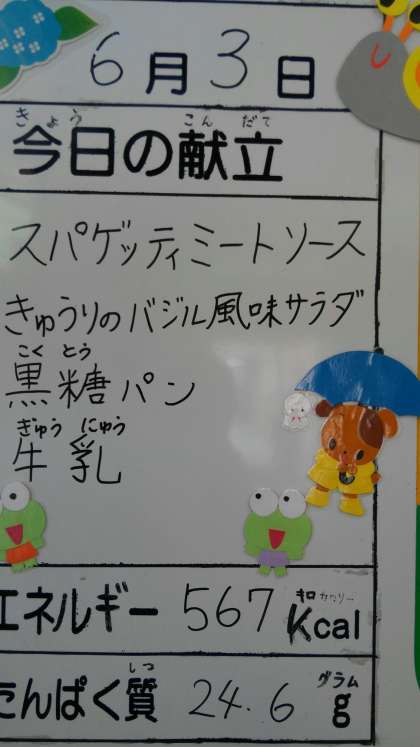 6月3日
きょう こんだて
今日の献立
スパゲッティミートソース
きゅうりのバジル風味サラダ
こくとう
黒糖パン
ぎゅうにゅう
牛乳
キロカロリー
エネルギー 567 Kcal
しつ グラム
たんぱく質 24.6 g